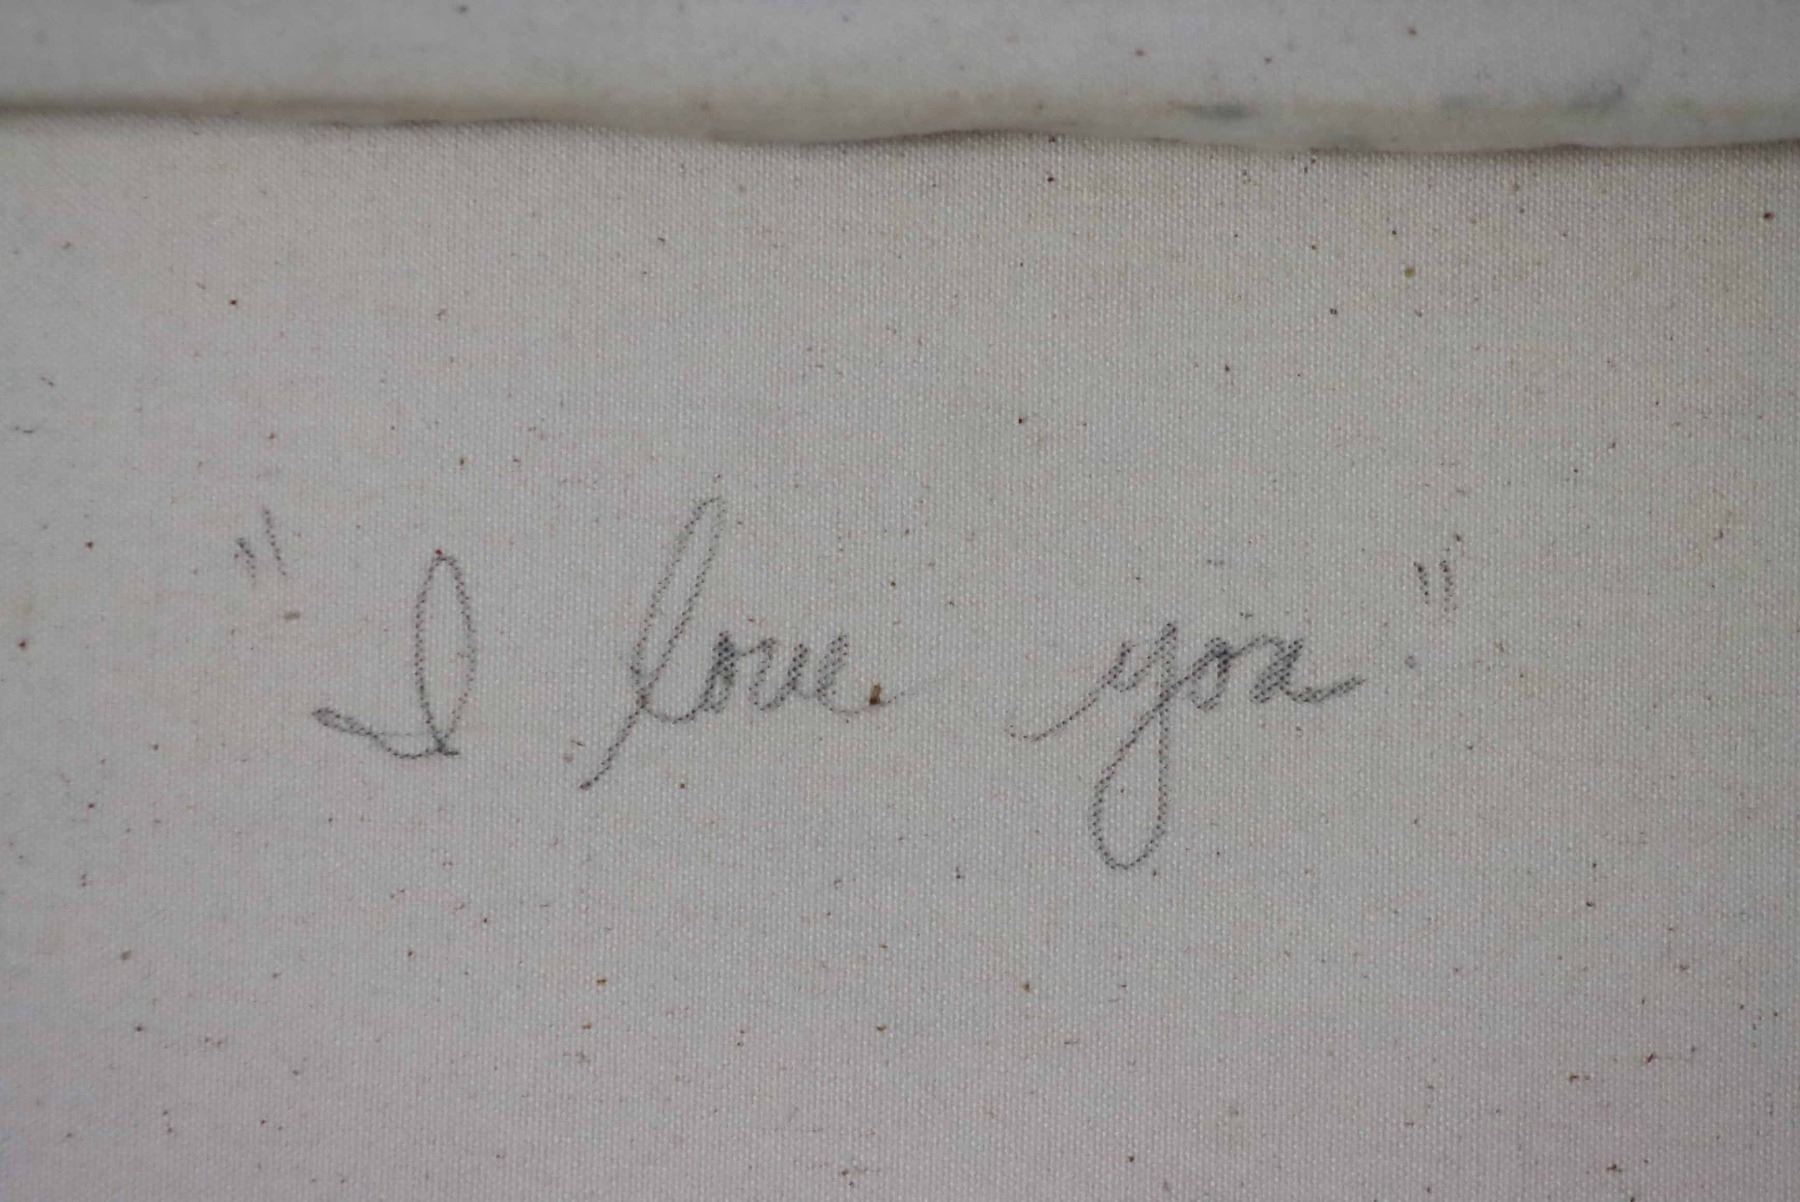 "I love you"